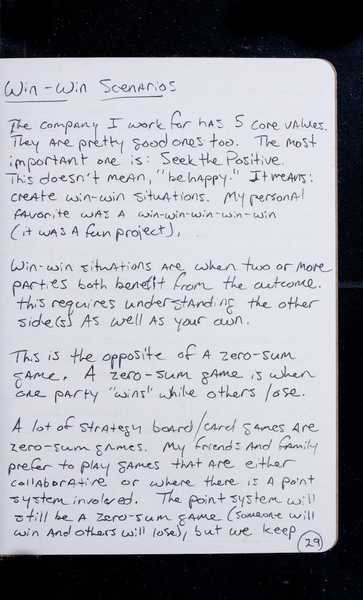 Win-Win Scenarios
The company I work for has 5 core values.
They are pretty good ones too. The most
important one is: Seek the Positive.
This doesn't mean, "be happy." It means:
create win-win situations. My personal
favorite was a win-win-win-win-win
(it was a fun project).
Win-win situations are when two or more
parties both benefit from the outcome.
this requires understanding the other
side(s) as well as your own.
This is the opposite of a zero-sum
game. A zero-sum game is when
one party "wins" while others lose.
A lot of strategy board/card games are
zero-sum games. My friends and family
prefer to play games that are either
collaborative or where there is a point
system involved. The point system will
still be a zero-sum game (someone will
win and others will lose), but we keep
29